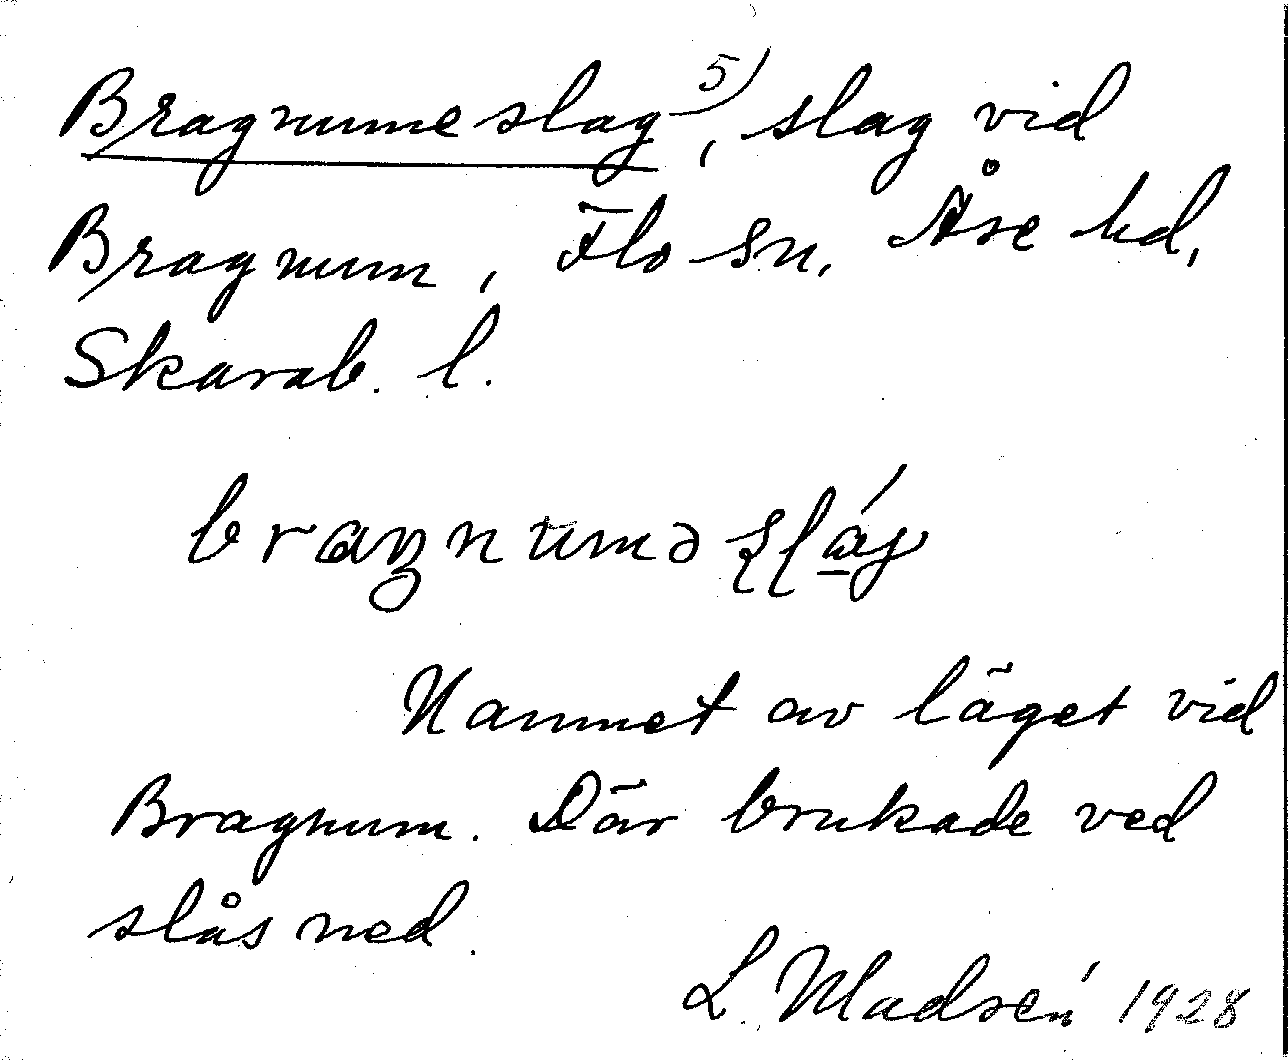 Bragnumeslag 5), slag vid
Bragnum, Flo sn, Åse hd,
Skarab. l.
Namnet av läget vid
Bragnum. Där brukade ved
slås ned.
L. Madsén 1928